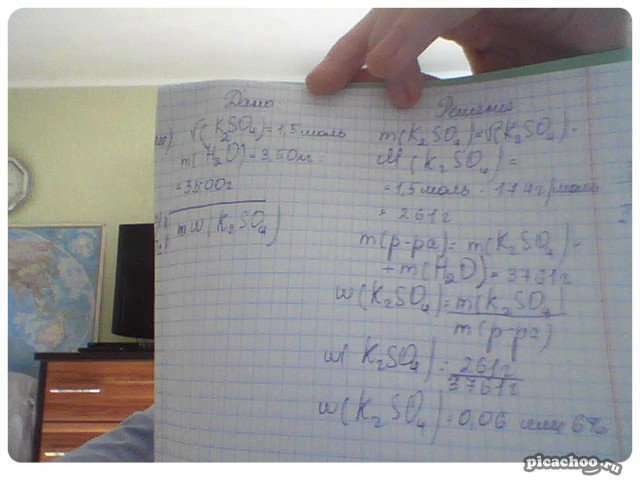 Дано
ν(K₂SO₄)=1,5моль
m(H₂O)=3,50кг
=3500г
mw(K₂SO₄)
Решение
m(K₂SO₄)=ν(K₂SO₄)·
M(K₂SO₄)=
=1,5моль·174г/моль
=261г
m(р-ра)=m(K₂SO₄)+
+m(H₂O)=3761г
w(K₂SO₄)=m(K₂SO₄)
m(р-ра)
w(K₂SO₄)=261г
3761г
w(K₂SO₄)=0,06 или 6%
picachoo.ru